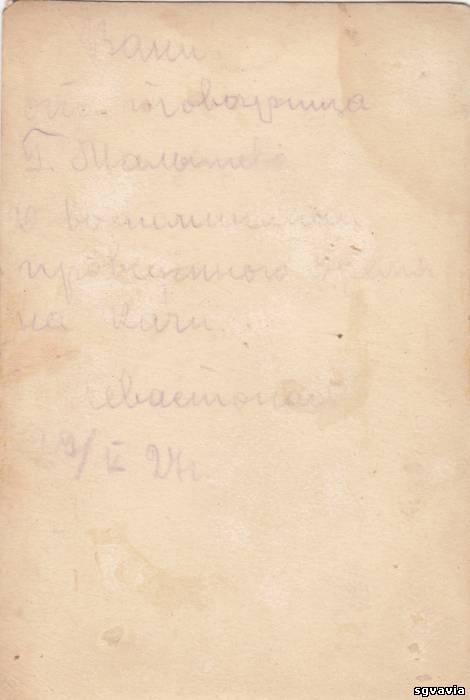 Вани
от товарища
Г. Малышева
о воспоминании
проведенного время
на Каче.
Севастополь
19/IV 24г.
sgvavia